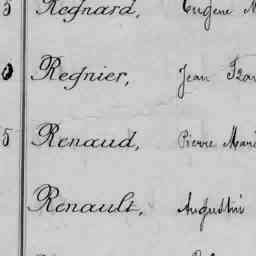 5 Regnard, Eugène
Regnier, Jean
5 Renaud, Pierre
Renault, Augustin